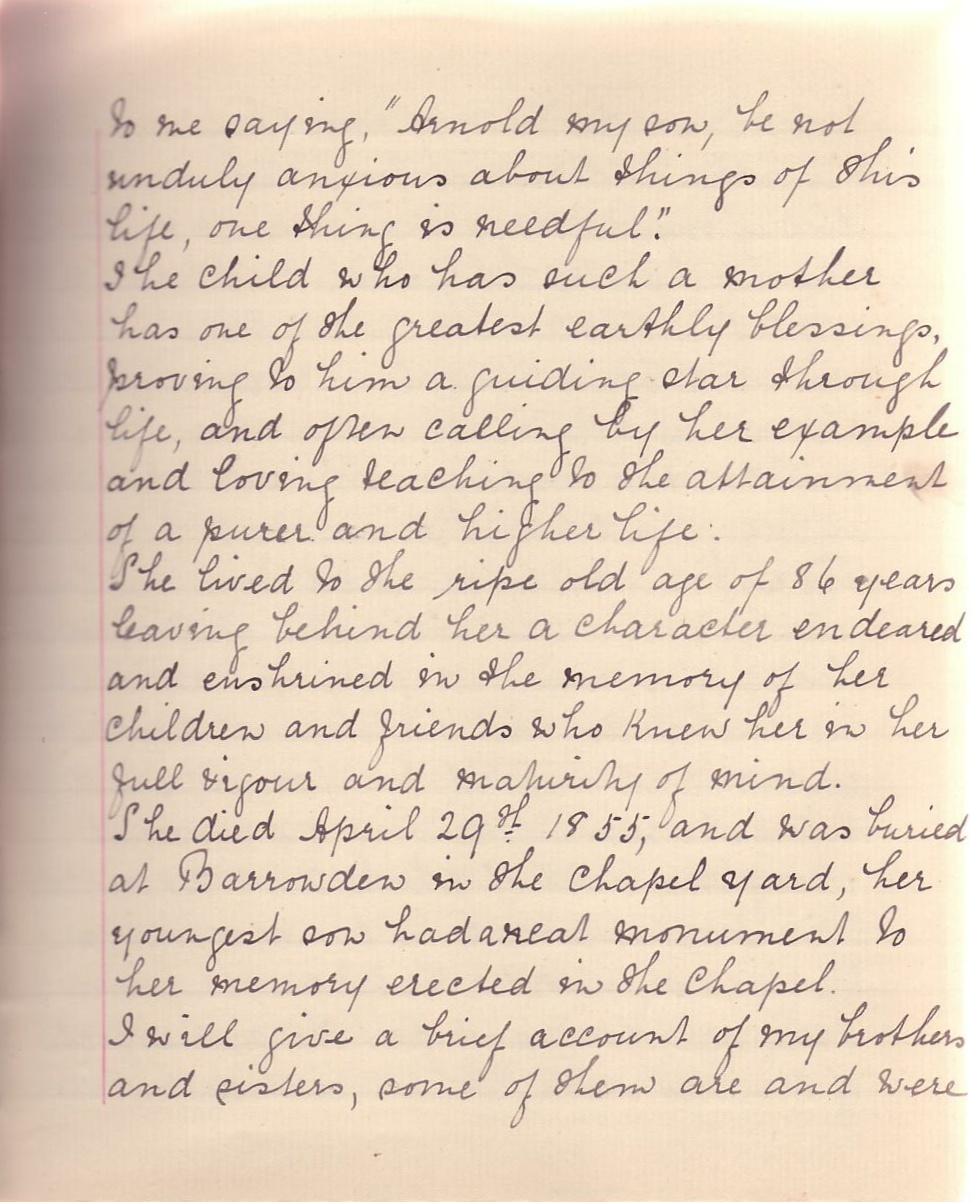 to me saying, "Arnold my son, be not
unduly anxious about things of this
life, one thing is needful".
The child who has such a mother
has one of the greatest earthly blessings,
proving to him a guiding star through
life, and often calling by her example
and loving teaching to the attainment
of a purer and higher life.
She lived to the ripe old age of 86 years
leaving behind her a character endeared
and enshrined in the memory of her
children and friends who knew her in her
full vigour and maturity of mind.
She died April 29th 1855, and was buried
at Barrowden in the Chapel yard, her
youngest son had a neat monument to
her memory erected in the Chapel.
I will give a brief account of my brothers
and sisters, some of them are and were